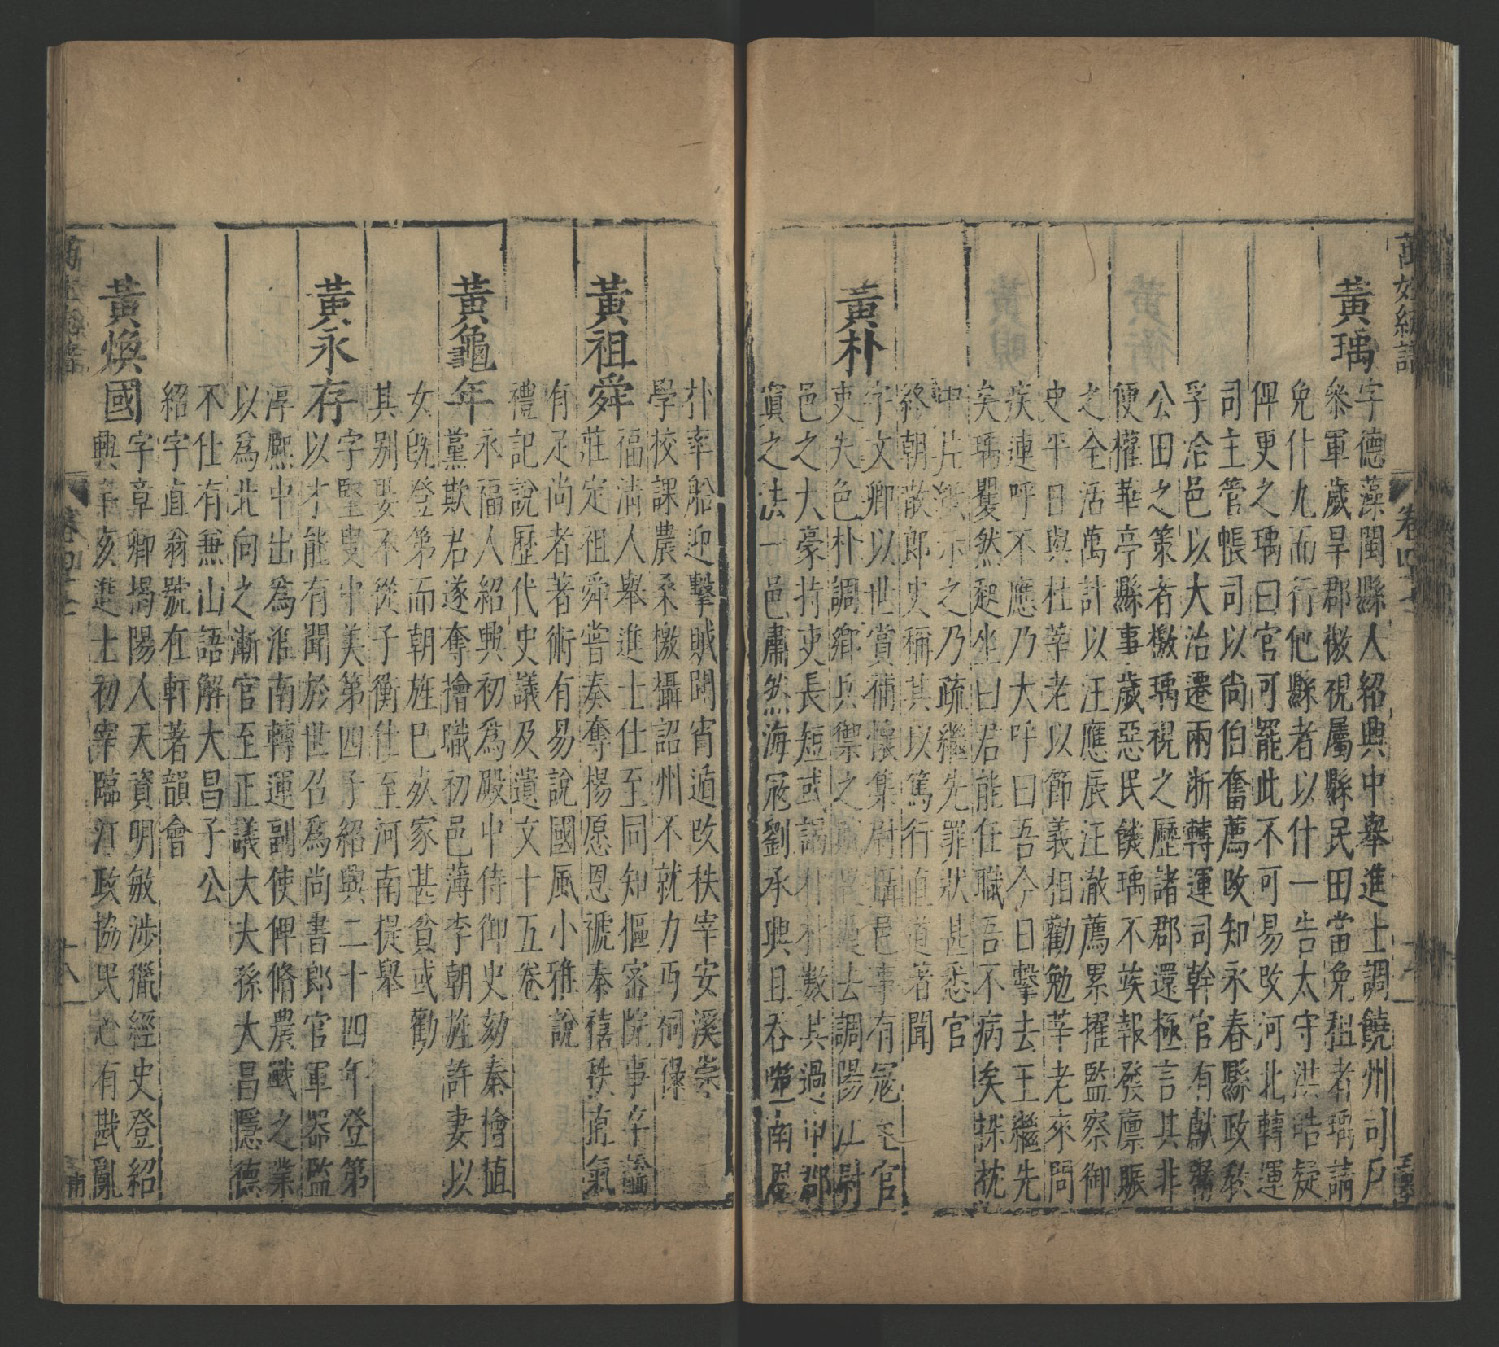 黃瑀
字德藻閩縣人紹興中舉進士調饒州司戶
叅軍歲旱郡檄視屬縣民田當免租者瑀請
免什九而行他縣者以什一告太守洪皓疑
俾更之瑀曰官可罷此不可易改河北轉運
司主管帳司以尚伯奮薦改知永春縣政敎
孚洽邑以大治遷兩浙轉運司幹官有獻鬻
公田之策者檄瑀視之歷諸郡還極言其非
便權華亭縣事歲惡民饑瑀不竢報發廪賑
之全活萬計以汪應辰汪澈薦累擢監察御
史平日與杜莘老以節義相勸勉莘老來問
疾連呼不應乃大呼曰吾今日擊去王繼先
矣瑀矍然起坐曰君能任職吾不病矣探枕
中片紙示之乃疏繼先罪狀甚悉官
終朝散郎史稱其以篤行直道著聞
黃朴
字文卿以世賞補懷集尉攝邑事有冦至官
吏失色朴調鄉兵禦之冦遁去調陽江尉
邑之大豪持吏長短或謁朴朴數其過申郡
寘之法一邑肅然海冦劉承與且吞噬南恩
朴率船迎擊賊聞宵遁改秩宰安溪崇
學校課農桑檄攝詔州不就力丏祠祿
黃祖舜
福清人舉進士仕至同知樞密院事卒諡
莊定祖舜嘗奏奪楊愿恩褫秦禧秩直氣
有足尚者著術有易說國風小雅說
禮記說歷代史議及遺文十五卷
黃龜年
永福人紹興初爲殿中侍御史劾秦檜植
黨欺君遂奪檜職初邑薄李朝旌許妻以
女旣登第而朝旌巳歿家甚貧或勸
其别娶不從子衡仕至河南提舉
黃永存
字堅叟中美第四子紹興二十四年登第
以才能有聞於世召爲尚書郎官軍器監
淳熙中出爲淮南轉運副使俾脩農戰之業
以爲北向之漸官至正議大夫孫大昌隱德
不仕有無山語解大昌子公
紹字直翁號在軒著韻會
黃煥國
字章卿揭陽人天資明敏涉獵經史登紹
興辛亥進士初宰臨江政協民心有戡亂